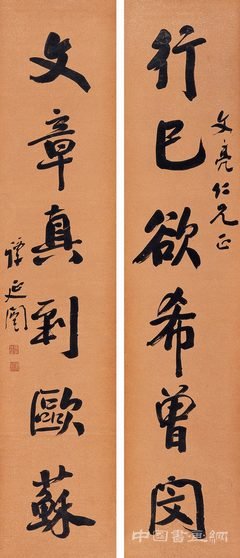 行己欲希曾閔
文亮仁兄正
文章真到歐蘇
譚延闓
中国書畫網